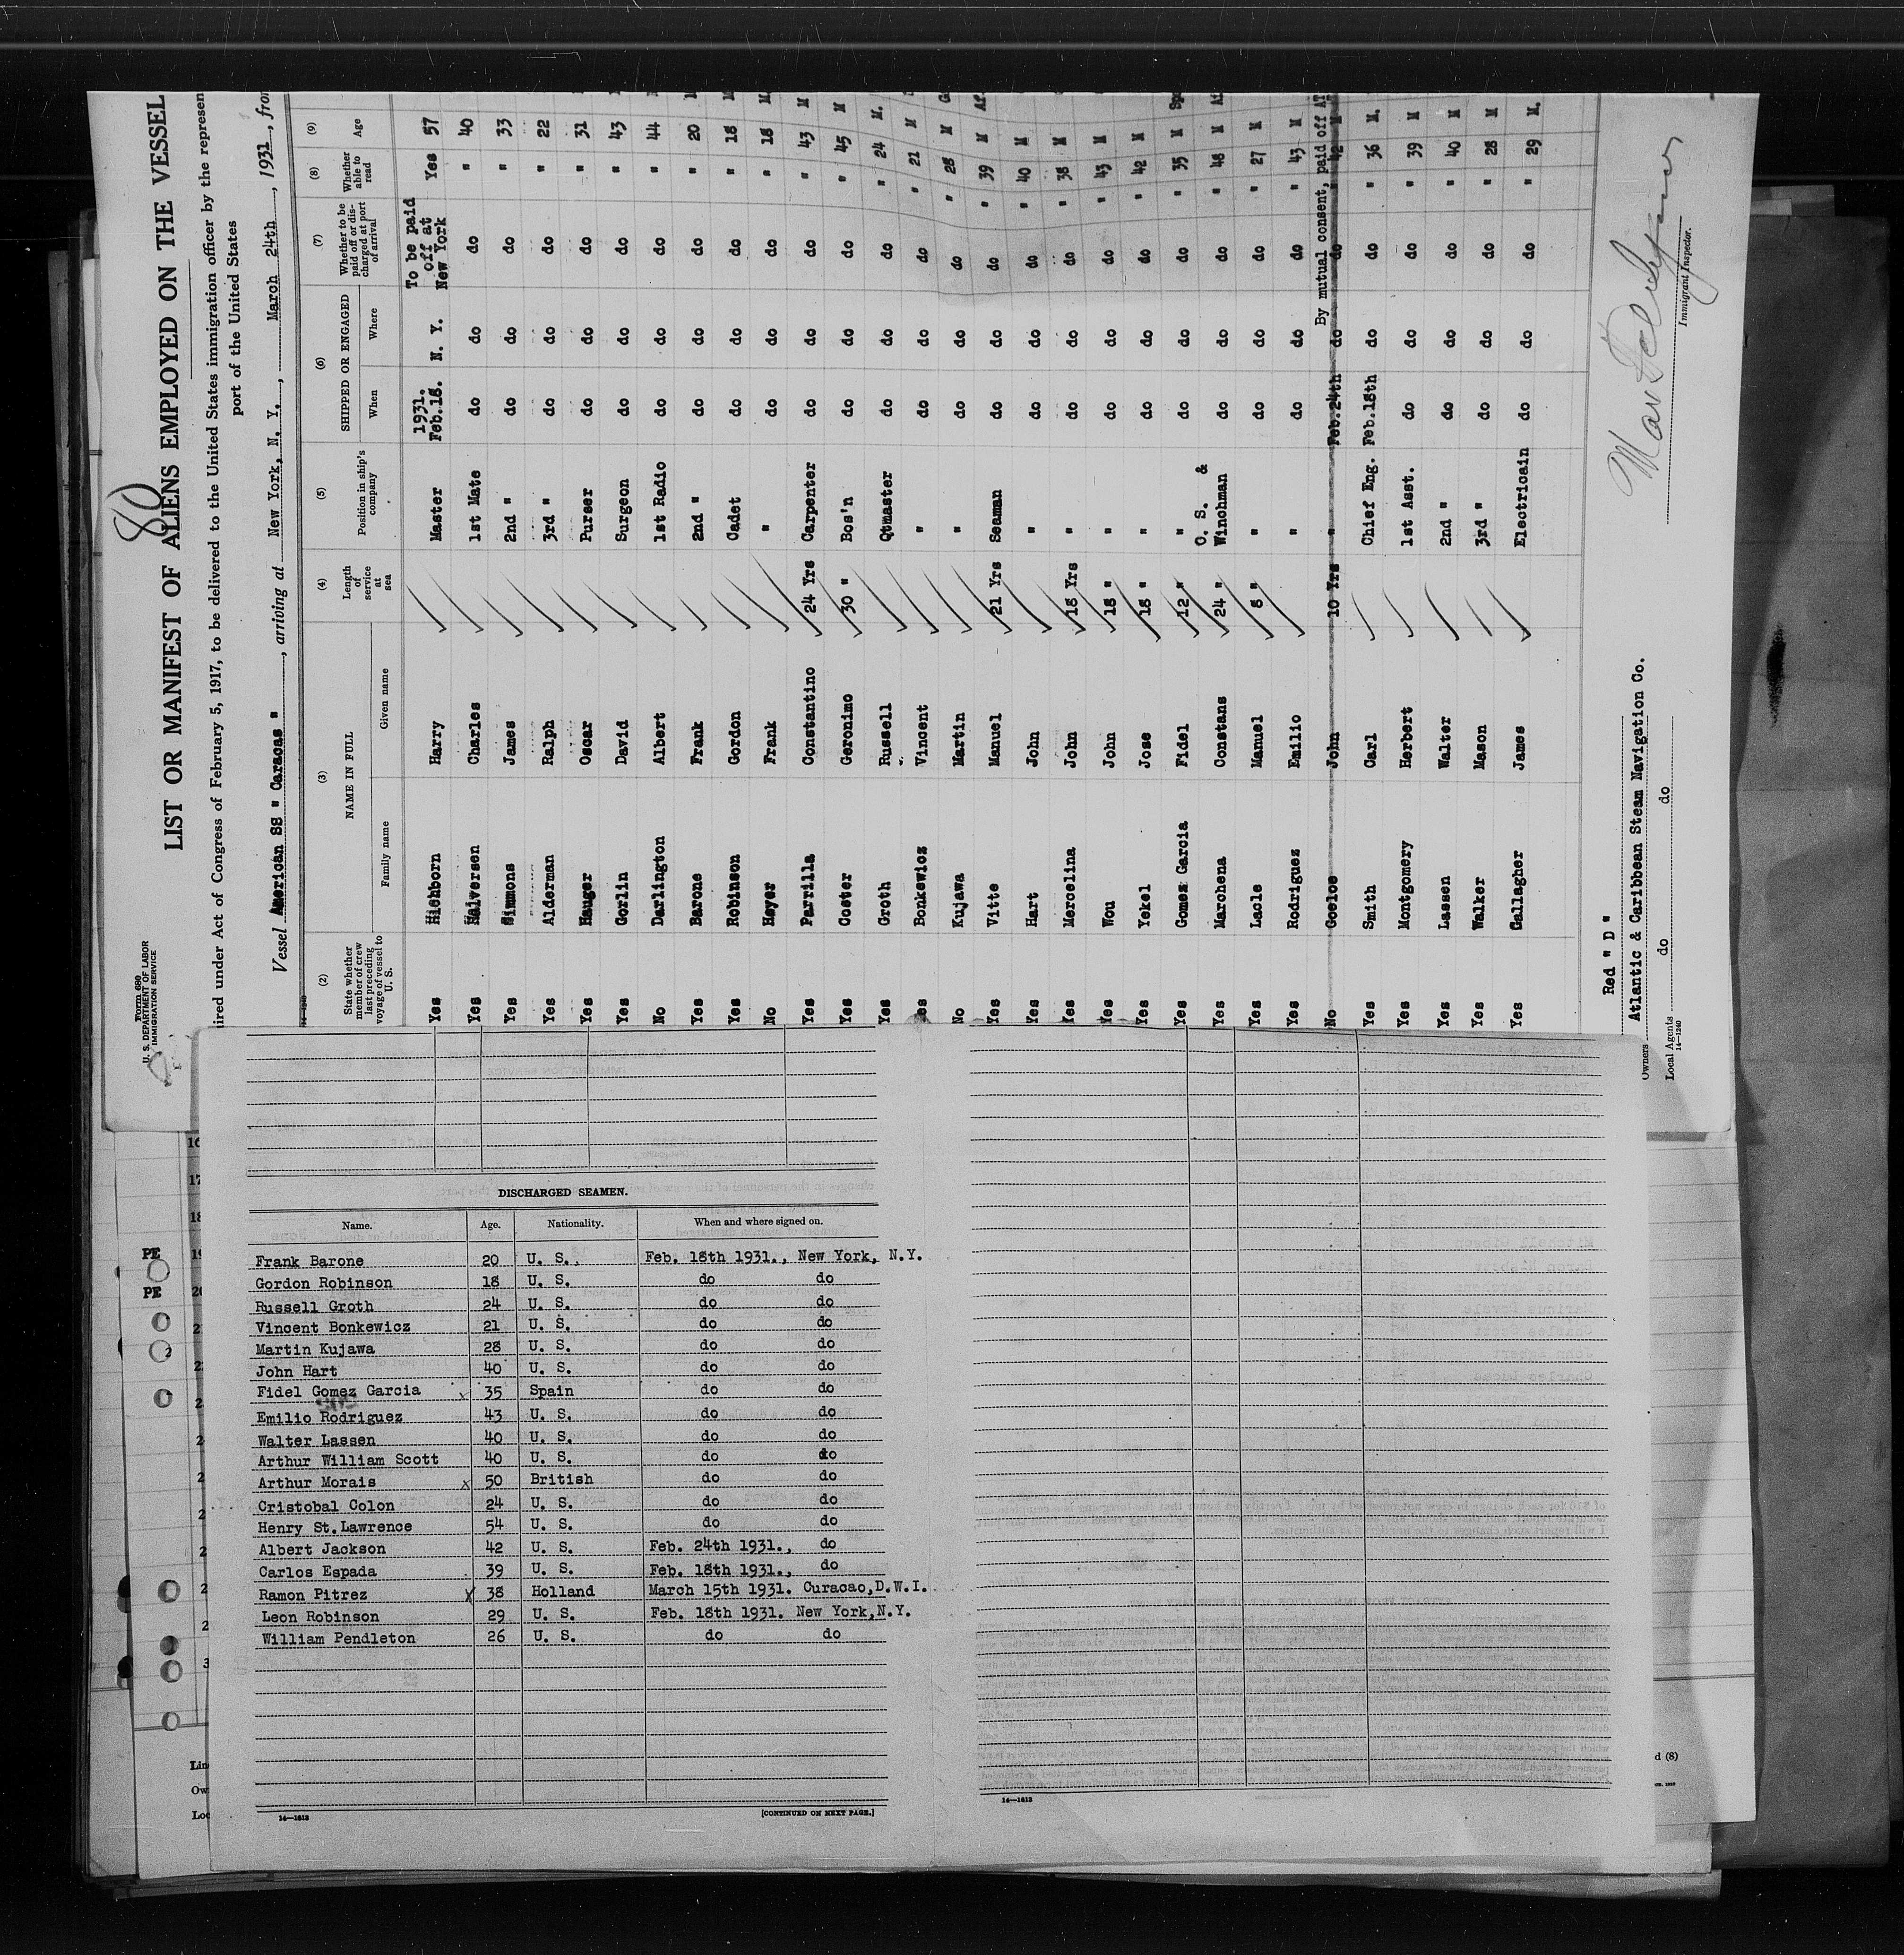 80
Form 680
U. S. DEPARTMENT OF LABOR
IMMIGRATION SERVICE
LIST OR MANIFEST OF ALIENS EMPLOYED ON THE VESSEL
ired under Act of Congress of February 5, 1917, to be delivered to the United States immigration officer by the represen
port of the United States
Vessel American SS " Caracas ", arriving at New York, N. Y., March 24th, 1931, from
(2) (3) (4) (5) (6) (7) (8) (9)
State whether member of crew last preceding voyage of vessel to U. S.
NAME IN FULL
Family name Given name
Length of service at sea
Position in ship's company
SHIPPED OR ENGAGED
When Where
Whether to be paid off or discharged at port of arrival
Whether able to read
Age
Yes Hichborn Harry Master 1931. Feb.18. N. Y. To be paid off at New York Yes 57
Yes Halversen Charles 1st Mate do do do " 40
Yes Simmons James 2nd " do do do " 33
Yes Alderman Ralph 3rd " do do do " 22
Yes Hauger Oscar Purser do do do " 31
Yes Gorlin David Surgeon do do do " 43
No Darlington Albert 1st Radio do do do " 44
Yes Barone Frank 2nd " do do do " 20
Yes Robinson Gordon Cadet do do do " 18
No Heyer Frank " do do do " 18
Yes Parrilla Constantino 24 Yrs Carpenter do do do " 43 M
Yes Coster Geronimo 30 " Bos'n do do do " 45 M
Yes Groth Russell Qtmaster do do do " 24 M.
Yes Bonkewicz Vincent " do do do " 21 M
No Kujawa Martin " do do do " 28 M
Yes Vitte Manuel 21 Yrs Seaman do do do " 39 M
Yes Hart John " do do do " 40 M
Yes Mercelina John 18 Yrs " do do do " 38 M
Yes Wou John 18 " " do do do " 43 M
Yes Yekel Jose 18 " " do do do " 42 M
Yes Gomez Garcia Fidel 12 " " do do do " 35 M
Yes Marchena Constans 24 " O. S. & Winchman do do do " 48 M
Yes Lacle Manuel 8 " " do do do " 27 M
Yes Rodriguez Emilio " do do do " 43 M
By mutual consent, paid off AT
No Goeloe John 10 Yrs " Feb.24th do do " 42 M
Yes Smith Carl Chief Eng. Feb.18th do do " 36 M.
Yes Montgomery Herbert 1st Asst. do do do " 39 M
Yes Lassen Walter 2nd " do do do " 40 M
Yes Walker Mason 3rd " do do do " 28 M
Yes Gallagher James Electricain do do do " 29 M.
Red " D "
Owners Atlantic & Caribbean Steam Navigation Co.
Local Agents do do
14—1240
Immigrant Inspector.
DISCHARGED SEAMEN.
Name. Age. Nationality. When and where signed on.
Frank Barone 20 U. S. Feb. 18th 1931., New York, N.Y.
Gordon Robinson 18 U. S. do do
Russell Groth 24 U. S. do do
Vincent Bonkewicz 21 U. S. do do
Martin Kujawa 28 U. S. do do
John Hart 40 U. S. do do
Fidel Gomez Garcia x 35 Spain do do
Emilio Rodriguez 43 U. S. do do
Walter Lassen 40 U. S. do do
Arthur William Scott 40 U. S. do do
Arthur Morais x 50 British do do
Cristobal Colon 24 U. S. do do
Henry St.Lawrence 54 U. S. do do
Albert Jackson 42 U. S. Feb. 24th 1931., do
Carlos Espada 39 U. S. Feb. 18th 1931., do
Ramon Pitrez X 38 Holland March 15th 1931. Curacao,D.W.I.
Leon Robinson 29 U. S. Feb. 18th 1931. New York,N.Y.
William Pendleton 26 U. S. do do
14—1613
[CONTINUED ON NEXT PAGE.]
14—1613
PE
PE
d (8)